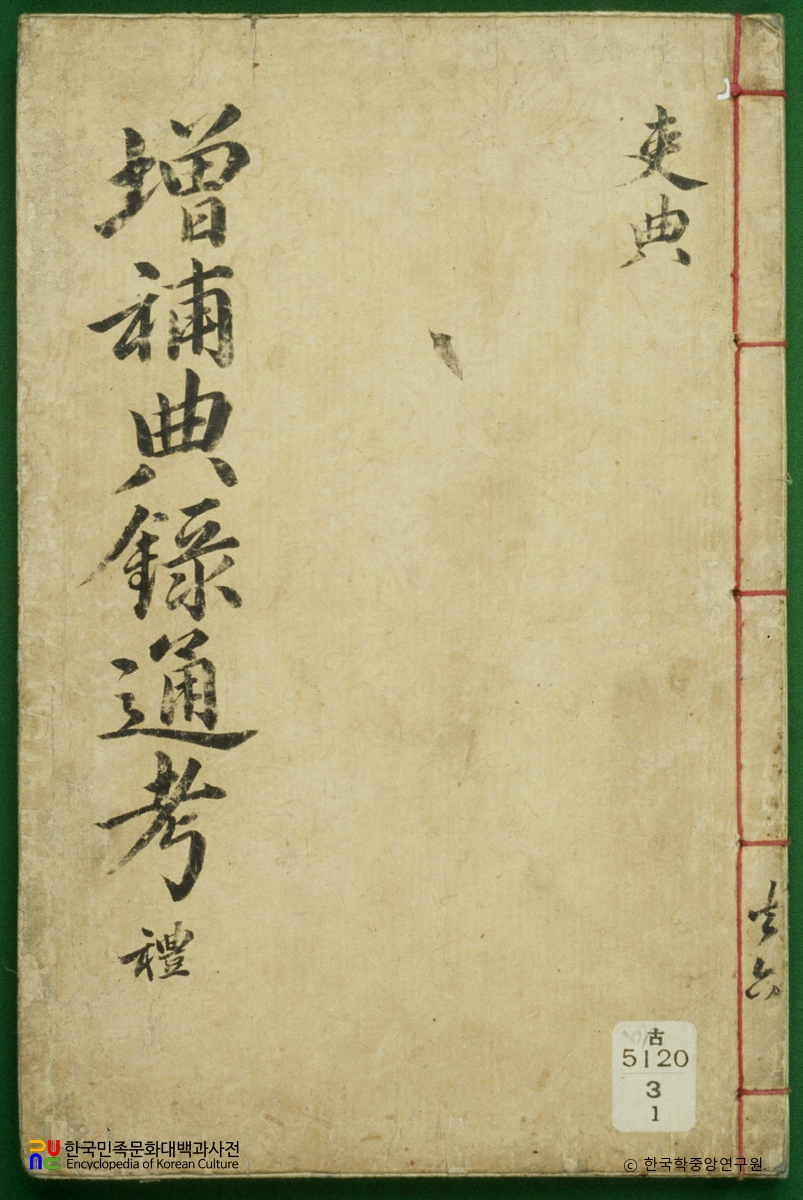 吏典
增補典錄通考 禮
共六
古
5120
3
1
한국민족문화대백과사전
Encyclopedia of Korean Culture
© 한국학중앙연구원